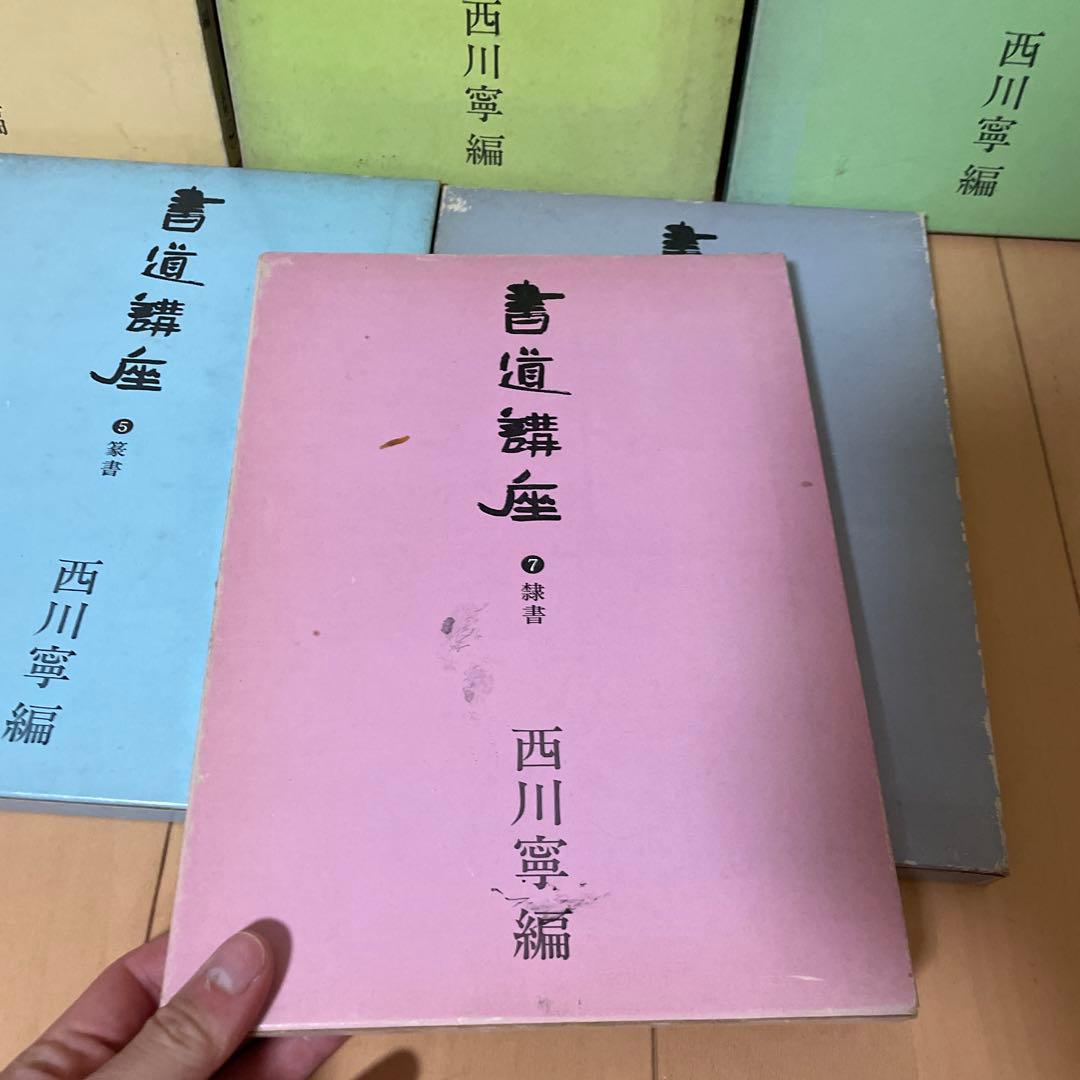 編
西川寧編
西川寧編
書道講座
❺篆書
西川寧編
書
書道講座
❼隸書
西川寧編